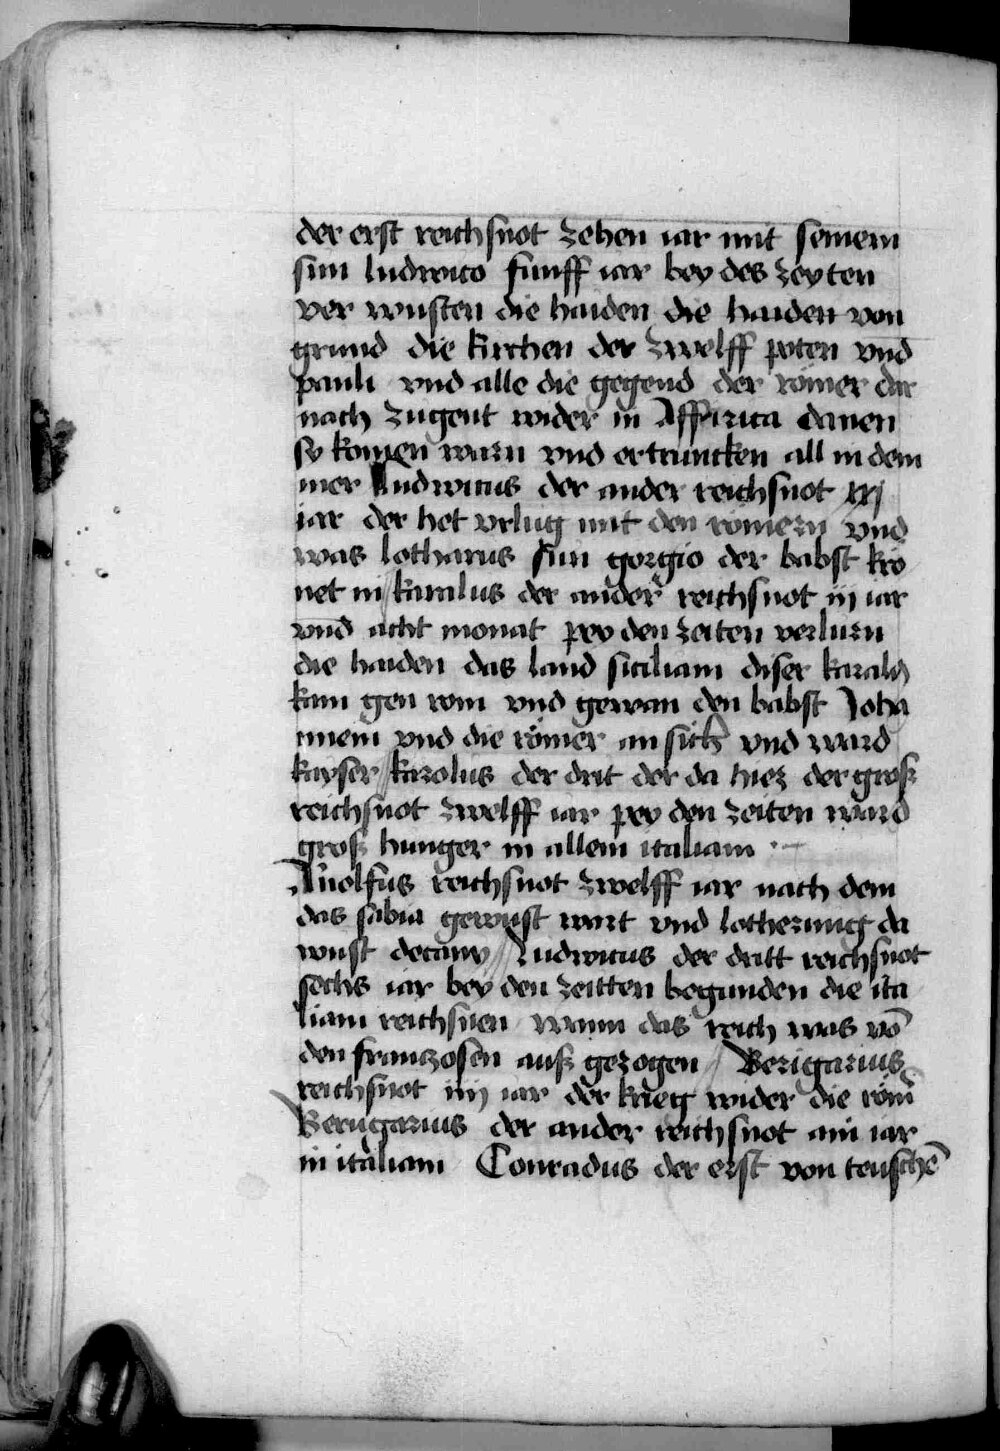 der erst reichsnot zehen iar mit seinem
sun ludwico funff iar bey des zeyten
ver wusten die haiden die haiden von
grund die kirchen der zwelff poten vnd
pauli vnd alle die gegend der römer dar
nach zugent wider in Affirica danen
sy komen warn vnd ertruncken all in dem
mer Ludwicus der ander reichsnot xxj
iar der het vrlug mit den römern vnd
was lotharius sun gorgio der babst krö
net in / karolus der ander reichsnot iij iar
vnd acht monat pey den zeiten verlurn
die haiden das land siciliam diser karolus
kam gen rom vnd gewan den babst Joha
nnem vnd die römer an sich vnd ward
kayser / karolus der drit der da hiez der groß
reichsnot zwelff iar pey den zeiten ward
groß hunger in allem italiam
Arnolfus reichsnot zwelff iar nach dem
das sabia gewust wart vnd lotheringen da
wust decany // Ludwicus der dritt reichsnot
sechs iar bey den zeitten begunden die ita
liam reichsnen wann das reich was vō
den frantzosen auß gezogen // Berigarius
reichsnot iiij iar der krieg wider die röm̄
Berngarius der ander reichsnot ain iar
in italiam Conradus der erst von teuschē